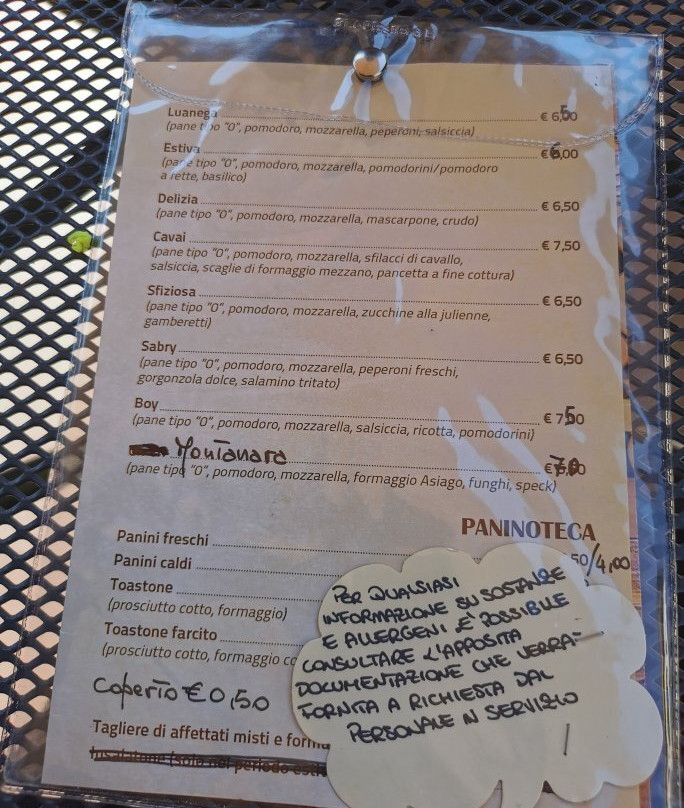 Luanega € 6,50
(pane tipo "0", pomodoro, mozzarella, peperoni, salsiccia)
Estiva € 6,00
(pane tipo "0", pomodoro, mozzarella, pomodorini/pomodoro
a fette, basilico)
Delizia € 6,50
(pane tipo "0", pomodoro, mozzarella, mascarpone, crudo)
Cavai € 7,50
(pane tipo "0", pomodoro, mozzarella, sfilacci di cavallo,
salsiccia, scaglie di formaggio mezzano, pancetta a fine cottura)
Sfiziosa € 6,50
(pane tipo "0", pomodoro, mozzarella, zucchine alla julienne,
gamberetti)
Sabry € 6,50
(pane tipo "0", pomodoro, mozzarella, peperoni freschi,
gorgonzola dolce, salamino tritato)
Boy € 7,50
(pane tipo "0", pomodoro, mozzarella, salsiccia, ricotta, pomodorini)
Montanara €
(pane tipo "0", pomodoro, mozzarella, formaggio Asiago, funghi, speck)
PANINOTECA
Panini freschi 50/4,00
Panini caldi
Toastone
(prosciutto cotto, formaggio)
Toastone farcito
(prosciutto cotto, formaggio
coperto € 0,50
Tagliere di affettati misti e
PER QUALSIASI
INFORMAZIONE SU SOSTANZE
E ALLERGENI E' POSSIBILE
CONSULTARE L'APPOSITA
DOCUMENTAZIONE CHE VERRA'
FORNITA A RICHIESTA DAL
PERSONALE IN SERVIZIO